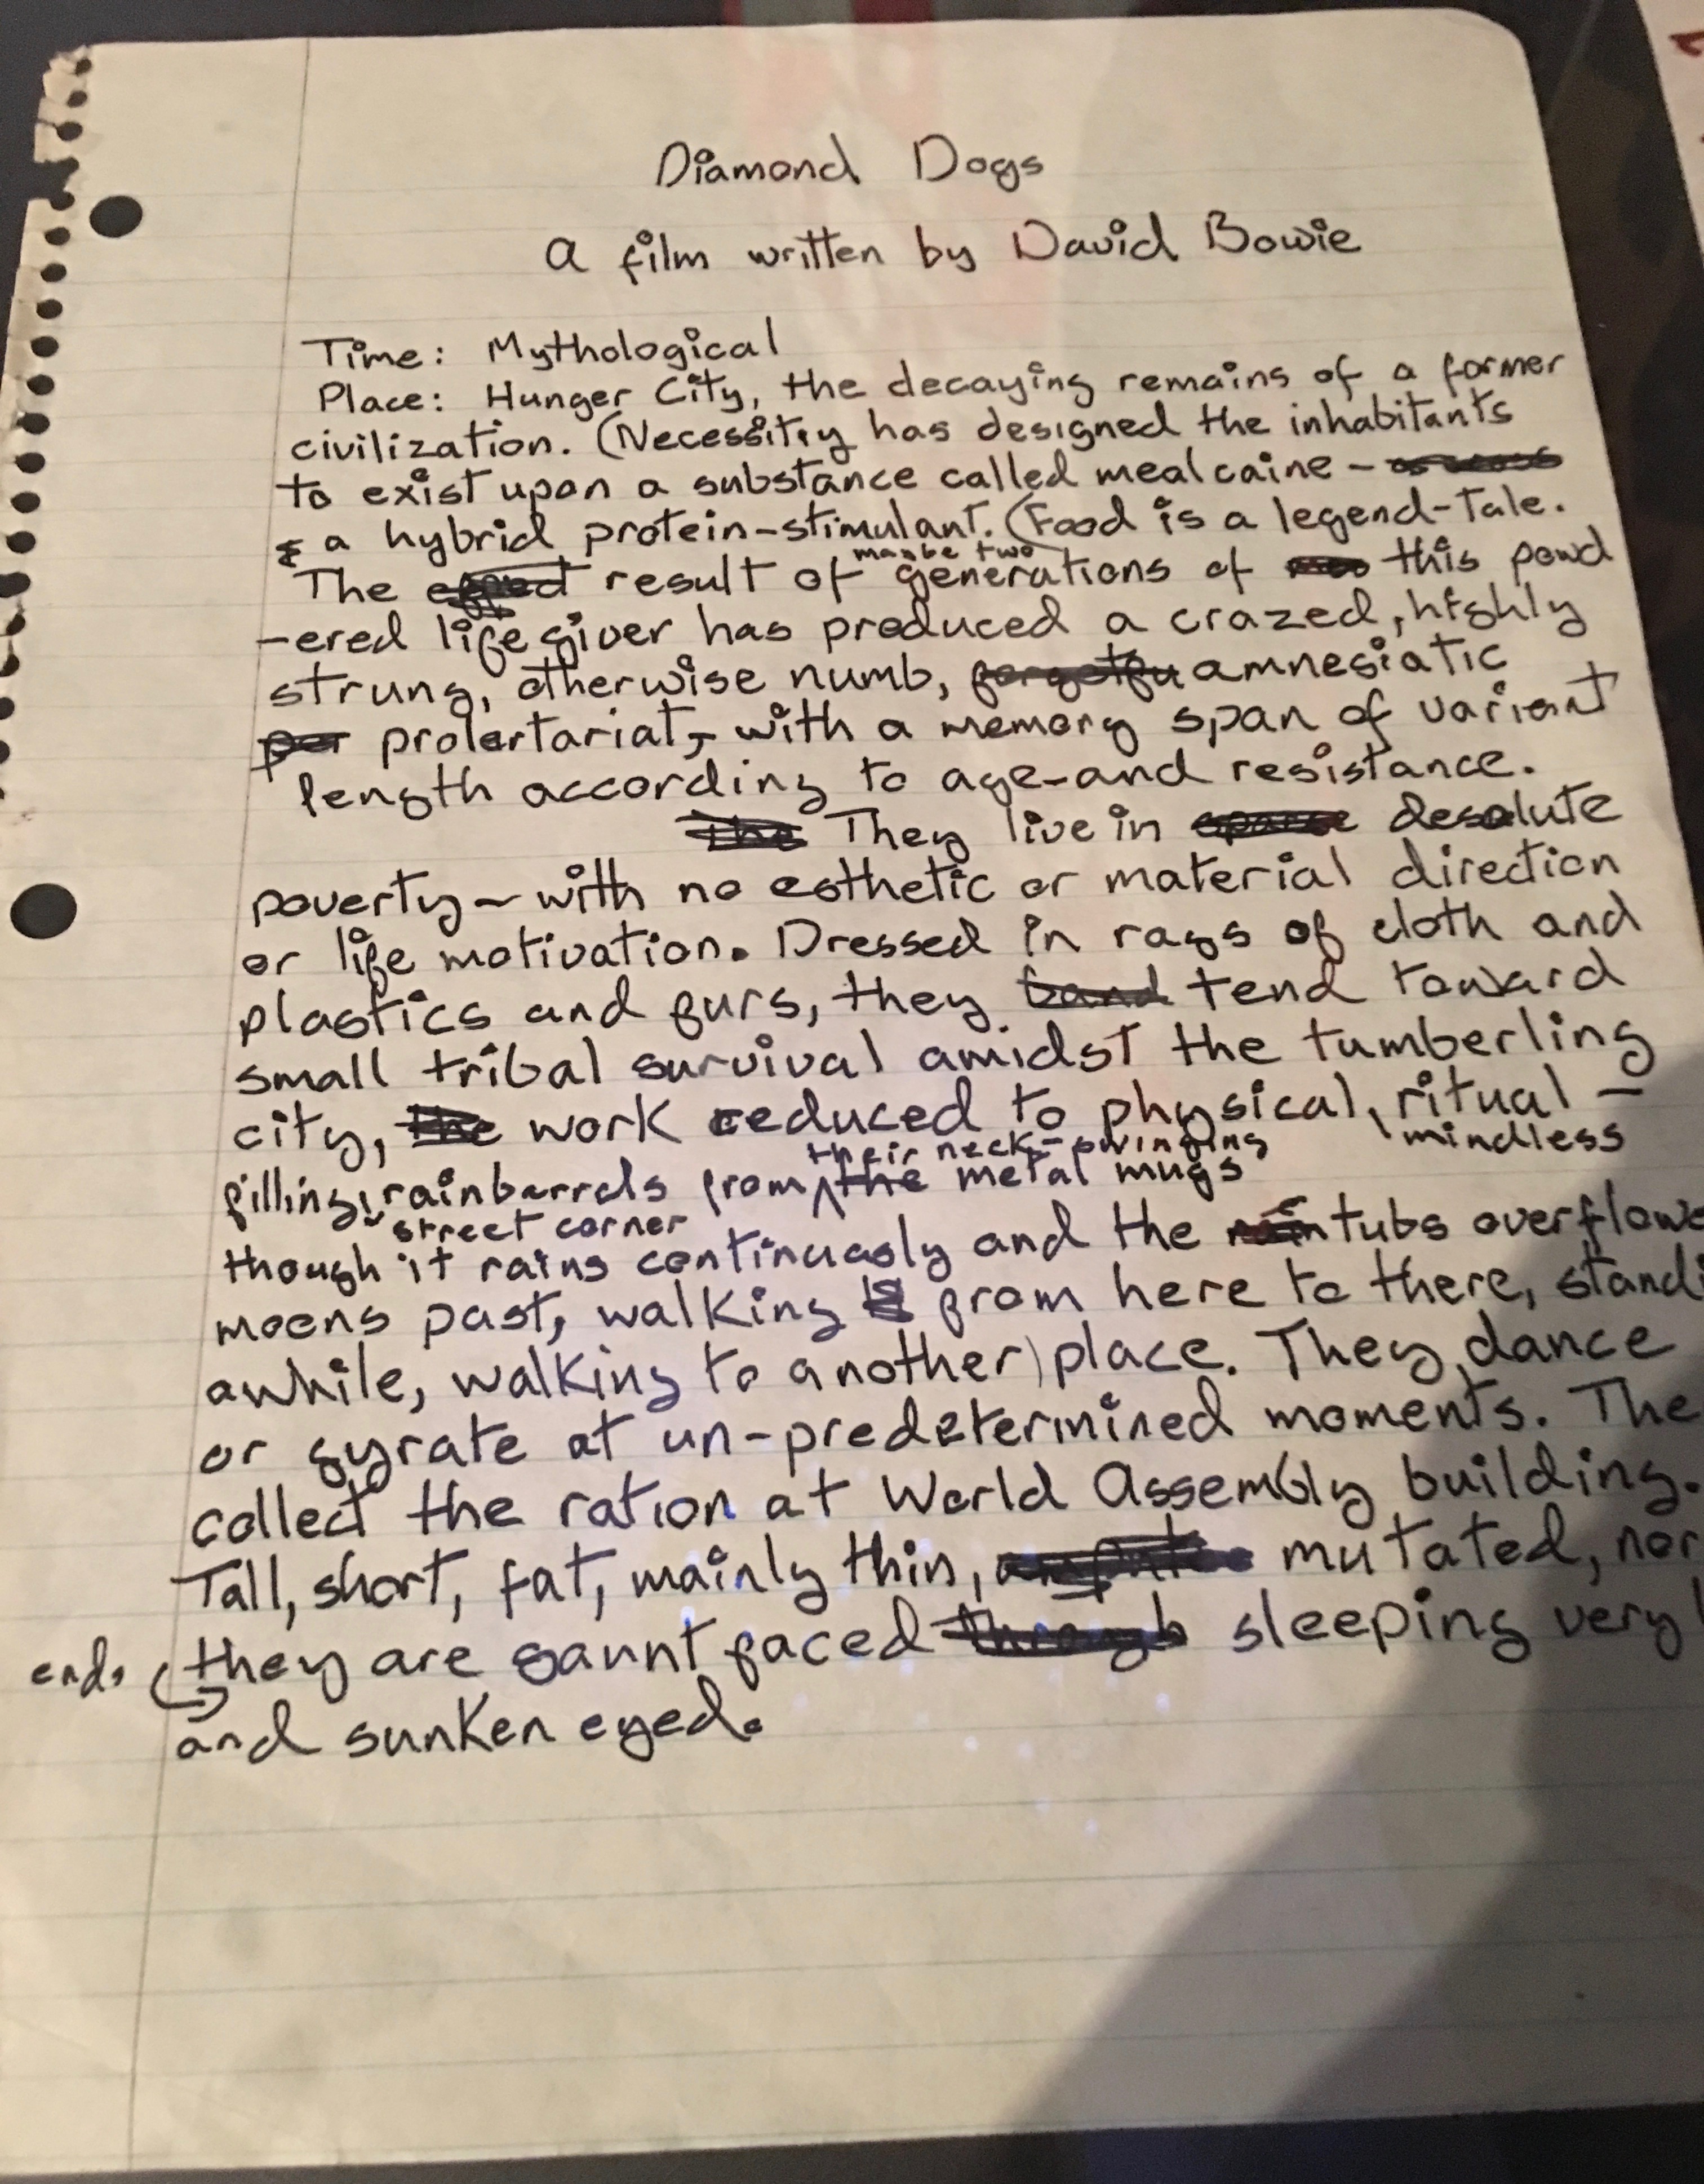 Diamond Dogs
a film written by David Bowie
Time: Mythological
Place: Hunger City, the decaying remains of a former
civilization. (Necessitiy has designed the inhabitants
to exist upon a substance called mealcaine –
a hybrid protein-stimulant. (Food is a legend-tale.
maybe two
The result of generations of this powd
-ered life giver has produced a crazed, highly
strung, otherwise numb, forgetfu amnesiatic
per prolertariat, with a memory span of variant
length according to age-and resistance.
The They live in sparse desolute
poverty – with no esthetic or material direction
or life motivation. Dressed in rags of cloth and
plastics and furs, they band tend toward
small tribal survival amidst the tumberling
city, the work reduced to physical, ritual –
mindless
their neck-swinging
filling rainbarrels from the metal mugs
street corner
though it rains continuasly and the rain tubs overflows
moons past, walking from here to there, standi
awhile, walking to another place. They dance
or gyrate at un-predetermined moments. The
collect the ration at World Assembly building.
Tall, short, fat, mainly thin, mutated, nor
ends they are gaunt faced through sleeping very
and sunken eyed.